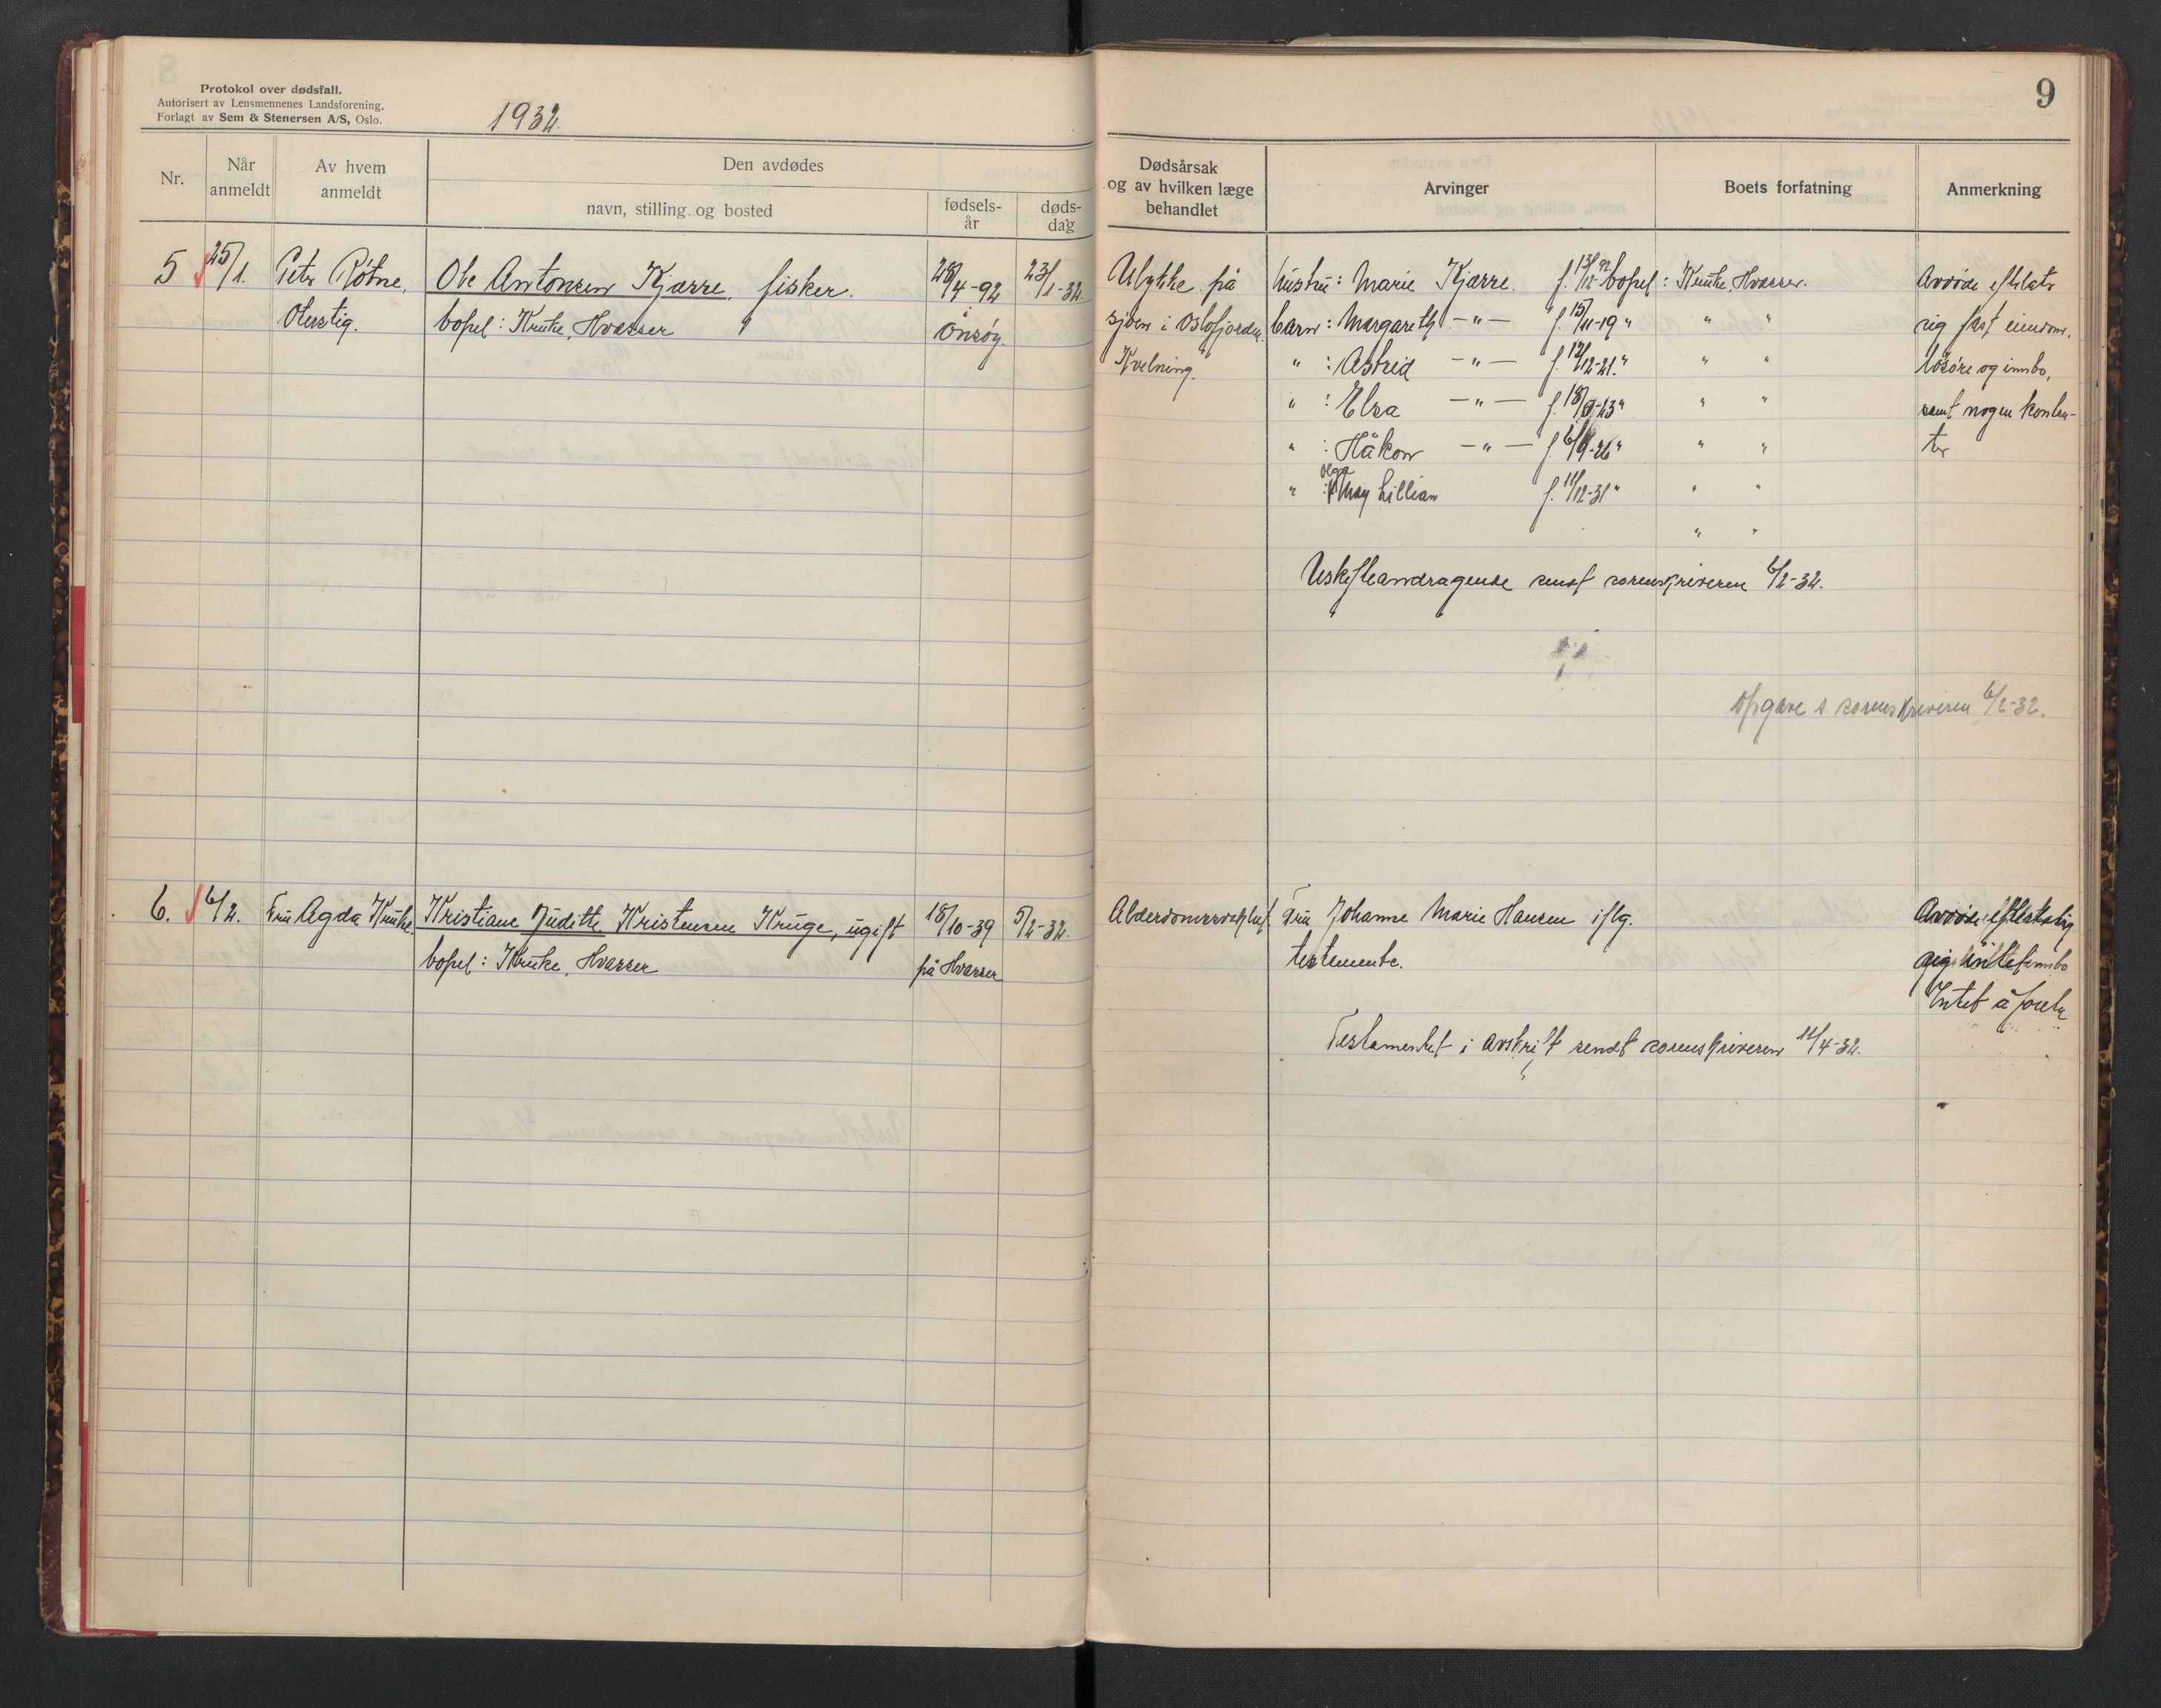 Protokol over dødsfall.
Autorisert av Lensmennenes Landsforening.
Forlagt av Sem & Stenersen A/S, Oslo.
1932.
9
Nr.
Når anmeldt
Av hvem anmeldt
Den avdødes
navn, stilling og bosted
fødsels-år
døds-dag
Dødsårsak og av hvilken læge behandlet
Arvinger
Boets forfatning
Anmerkning
5 25/1. Petr Røtne, Ole Antonsen Kjærre, fisker. 28/4-92 23/1-32.
bopel: Kruke, Hvasser Onsøy.
Ulykke på hustru: Marie Kjærre. f. 13/12-92 bopel: Kruke, Hvasser. Avdøde efterlater
sjøen i Oslofjorden. barn: Margareth -"- f. 15/11-19 " " " sig fast eiendom,
Kvelning. " : Astrid -"- f. 12/12-21. " " " løsøre og innbo,
" : Elsa -"- f. 18/9-23 " " " samt nogen kontan-
" : Håkon -"- f. 6/9-26 " " " ter
Olga
" : May Lillian f. 11/12-31 " " "
" "
Uskifteandragende sendt sorenskriveren 6/2-32.
Opgave s. sorenskriveren 6/2-32.
6. 6/2. Fru Agda Kruke. Kristiane Juditte Kristensen Kruge, ugift 18/10-39 5/2-32.
bopel: Kruke, Hvasser på Hvasser
Alderdomssvakhet. Fru Johanne Marie Hansen iflg. Avdøde
testamente. innbo
Intet å
Testamentet i avskrift sendt sorenskriveren 12/4-32.